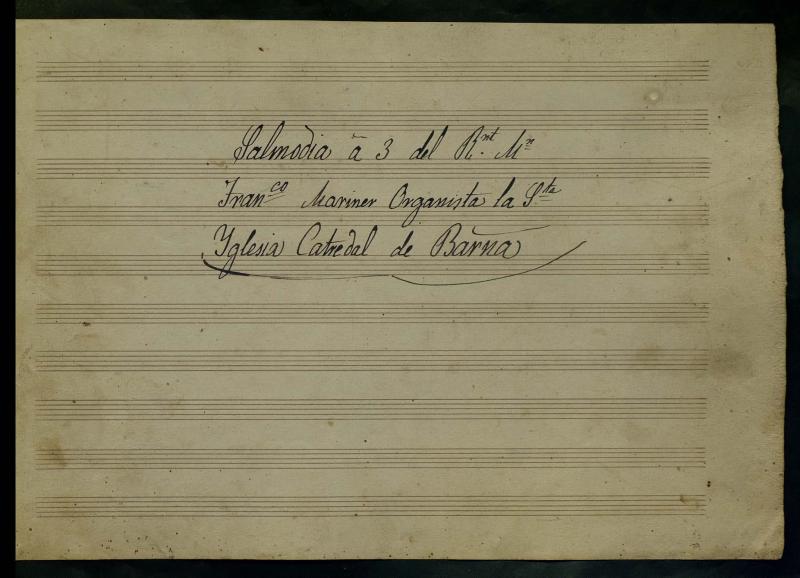 Salmodia â 3 del R.nt Mn
Franco Mariner Organista la Sta
Yglesia Catredal de Barna